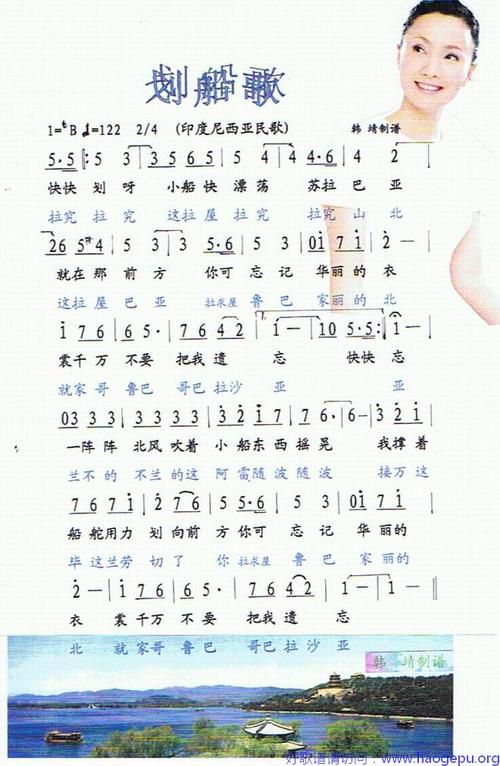 划船歌
1=ᵇB ♩=122 2/4 (印度尼西亚民歌) 韩靖制谱
5·5 |: 5 3 | 3 5 6 5 | 5 4 | 4 4·6 | 4 2 |
快快 划 呀 小船快 漂 荡 苏拉 巴 亚
拉究 拉 究 这拉屋 拉 究 拉究 山 北
26 5#4 | 5 3 | 3 5·6 | 5 3 | 0i 7 i | 2 — |
就在那 前 方 你可 忘 记 华丽的 衣
这拉屋 巴 亚 拉求屋 鲁 巴 家丽的 北
i 7 6 | 6 5· | 7 6 4 2 | i — | 10 5·5 :| i — |
裳千万 不要 把我遗 忘 快快 忘
就家哥 鲁巴 哥巴拉沙 亚 亚
03 3 3 | 3 3 3 3 | 3 2 i 7 | 7 6· | 6 — | 3 2 i |
一阵阵 北风吹着 小船东西 摇晃 我撑着
兰不的 不兰的这 阿雷随波 随波 接万这
7 6 7 i | 2 7 6 | 5 5·6 | 5 3 | 0i 7 i |
船舵用力 划向前 方你可 忘记 华丽的
毕这兰劳 切了 你拉求屋 鲁巴 家丽的
2 — | i 7 6 | 6 5· | 7 6 4 2 | 1 — | 1 — |
衣 裳千万 不要 把我遗 忘
北 就家哥 鲁巴 哥巴拉沙 亚
韩 靖制谱
好歌谱请访问:www.haogepu.org